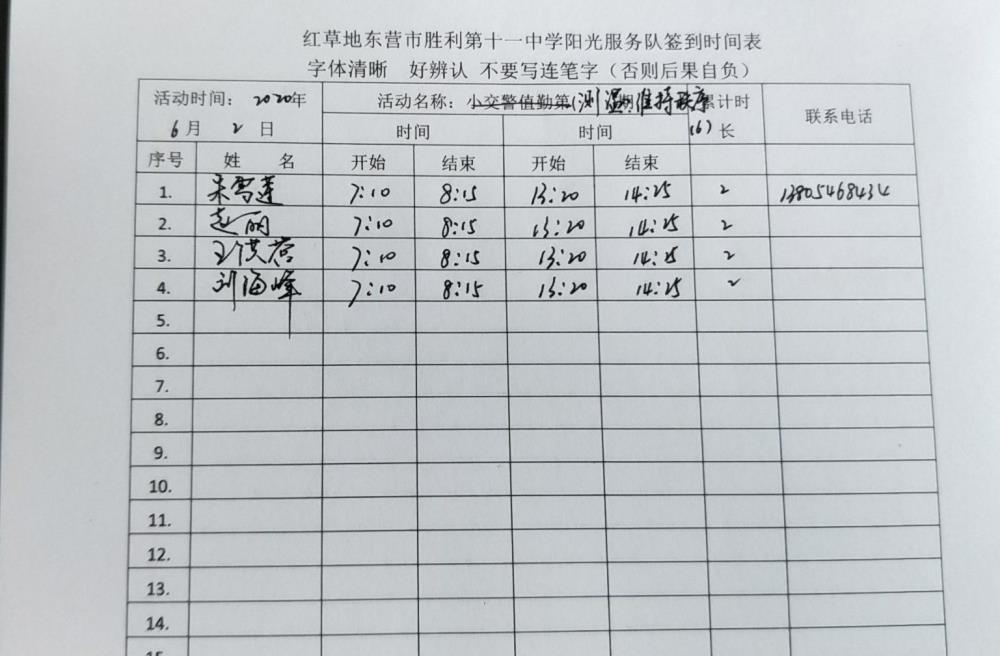 红草地东营市胜利第十一中学阳光服务队签到时间表
字体清晰 好辨认 不要写连笔字（否则后果自负）
活动时间： 2020年 活动名称： 小交警值勤第(测温)维持秩序 累计时 联系电话
6月 2日 时间 时间 (6) 长
序号 姓 名 开始 结束 开始 结束
1. 朱雪莲 7:10 8:15 13:20 14:25 2 13805468434
2. 赵丽 7:10 8:15 13:20 14:25 2
3. 7:10 8:15 13:20 14:25 2
4. 刘海峰 7:10 8:15 13:20 14:25 2
5.
6.
7.
8.
9.
10.
11.
12.
13.
14.
15.